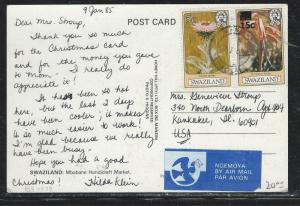 9 Jan 85
POST CARD
Dear Mrs. Stroup,
Thank you so much
for the Christmas card
and for the money you gave
to Mom. I really do
appreciate it!
It has been so hot
here, but the last 2 days
have been cooler; it makes it
so much easier to work!
I'm glad because we really
have been busy.
Hope you had a good
Christmas! Hilda Klein
SWAZILAND: Mbabane Handicraft Market.
SWAZILAND
15c
SWAZILAND
Mrs. Genevieve Stroup
340 North Dearborn Apt 904
Kankakee, Il. 60901
USA
NGEMOYA
BY AIR MAIL
PAR AVION
20.00